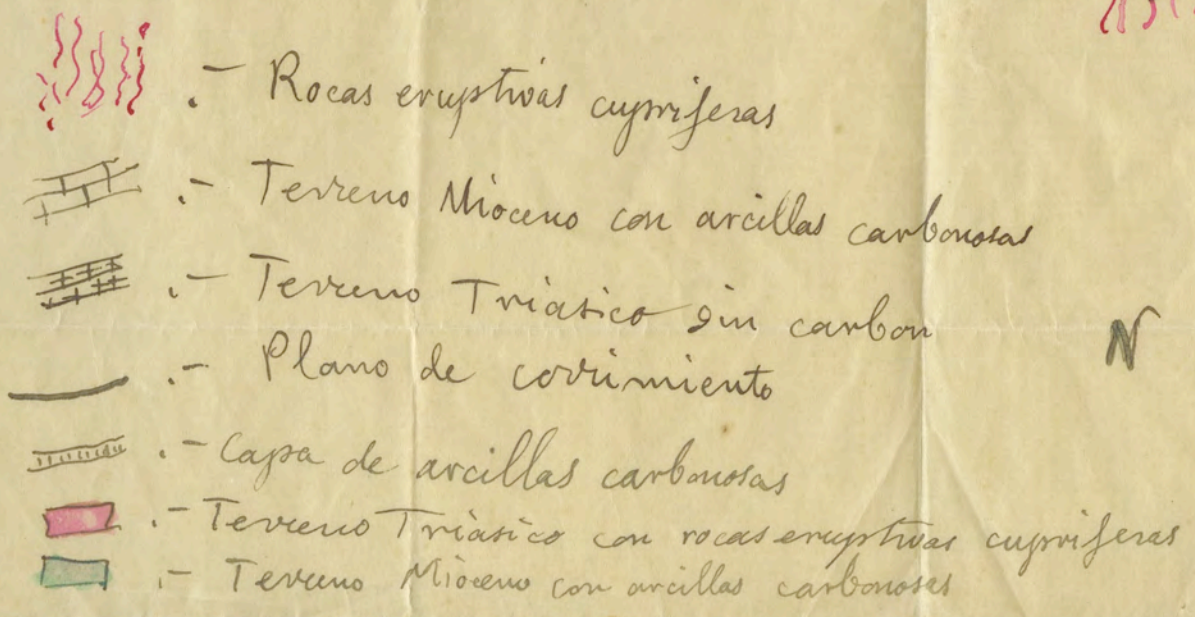 .- Rocas eruptivas cupriferas
.- Terreno Mioceno con arcillas carbonosas
.- Terreno Triasico sin carbon
N
.- Plano de corrimiento
.- Capa de arcillas carbonosas
.- Terreno Triasico con rocas eruptivas cupriferas
.- Terreno Mioceno con arcillas carbonosas